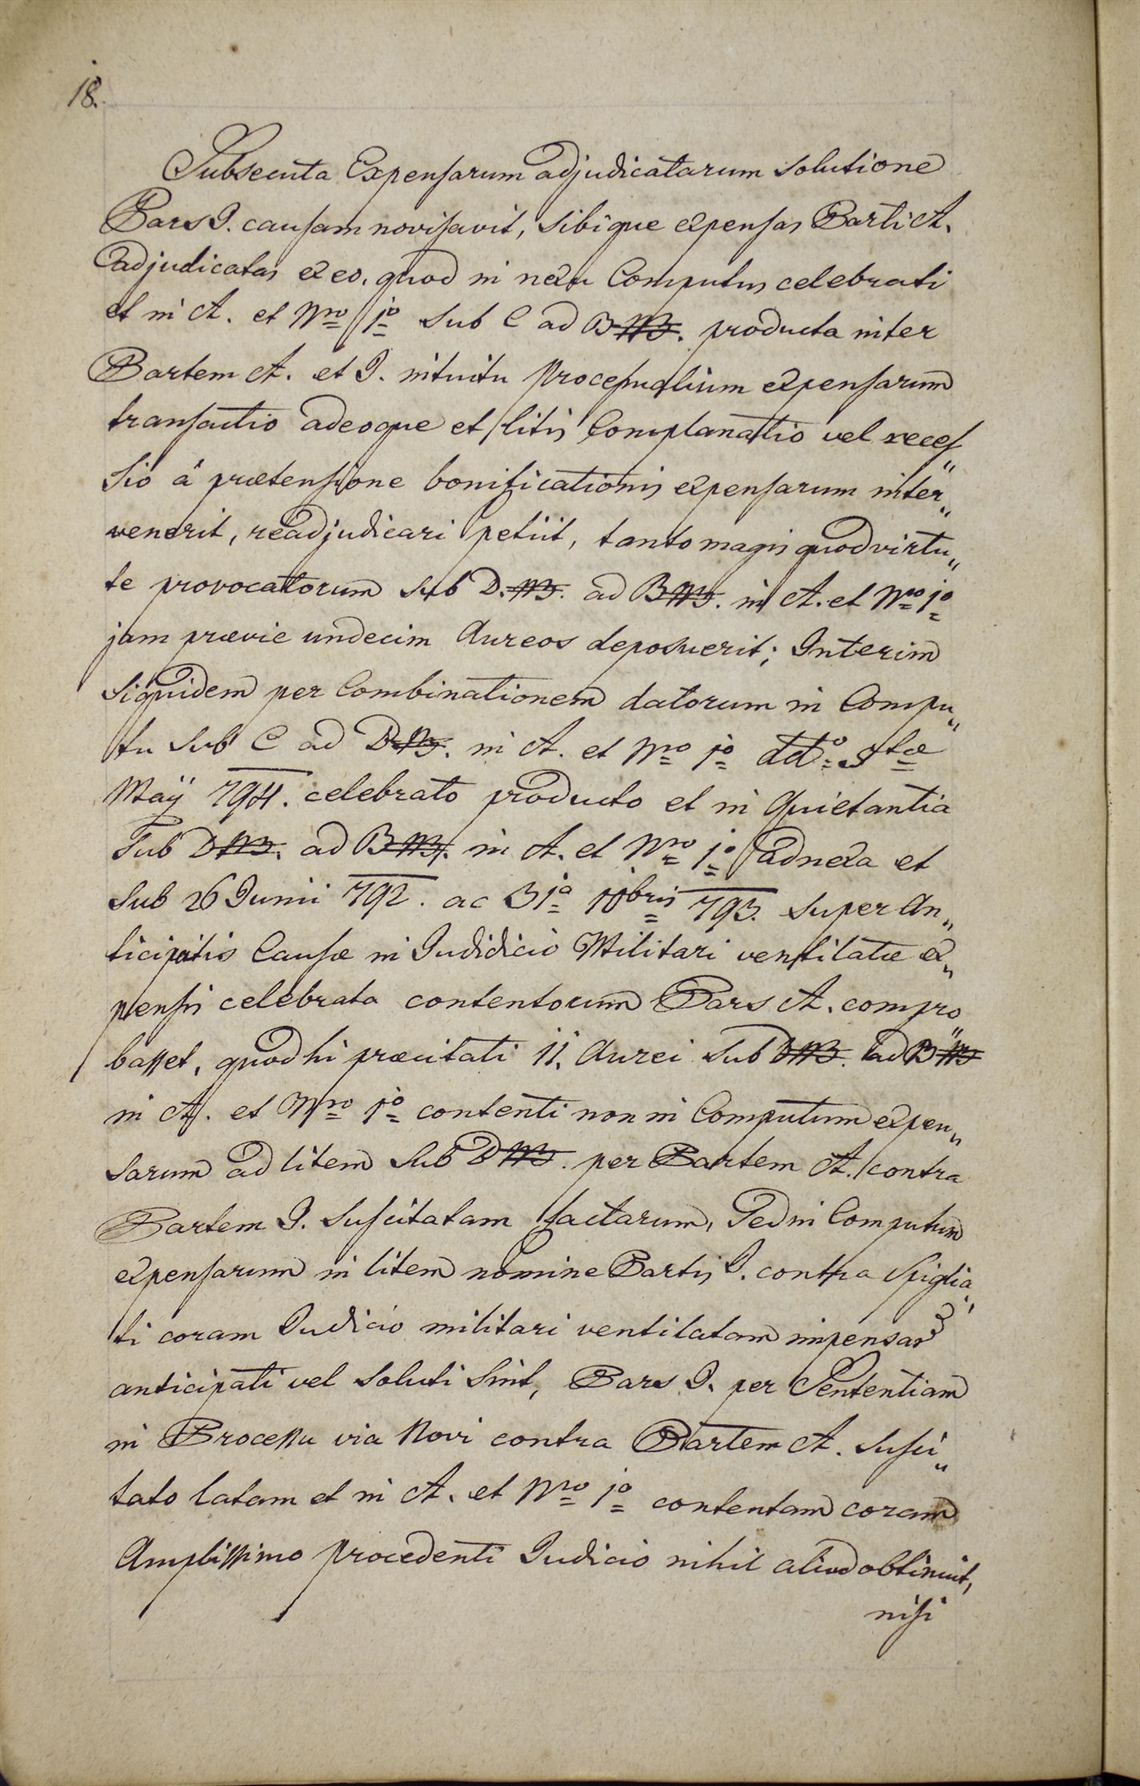 18.
Subsecuta Expensarum adjudicatarum solutione
Pars I. causam novisavit, sibique expensas Parti A.
adjudicatas ex eo, quod in nexu Computus celebrati
et in A. et Nro 1o sub C ad B producta inter
Partem A. et I. intuitu Processualium expensarum
transactio adeoque et litis Complanatio vel reces„
sio á prætensione bonificationis expensarum inter„
venerit, readjudicari petiit, tanto magis quod virtu„
te provocatorum sub D. ad B. in A. et Nro 1o
jam prævie undecim Aureos deposuerit; Interim
siquidem per Combinationem datorum in Compu„
tu sub C ad D. in A. et Nro 1o ddto
Maÿ 794. celebrato producto et in Quietantia
sub D. ad B. in A. et Nro 1o adnexa et
sub 26 Junii 792. ac 31a 10bris 793. super An„
ticipatis Causæ in Judidicio Militari ventilatæ ex„
pensis celebrata contentorum Pars A. compro„
basset, quod hi præcitati 11. Aurei sub D. ad B
in A. et Nro 1o contenti non in Computum expen„
sarum ad litem sub D. per Partem A. contra
Partem I. suscitatam factarum, sed in Computum
expensarum in litem nomine Partis I. contra Spiglia„
ti coram Judicio militari ventilatam impensar
anticipati vel soluti sint, Pars I. per Sententiam
in Processu via Novi contra Partem A. susci„
tato latam et in A. et Nro 1o contentam coram
Amplissimo procedenti Judicio nihil aliud obtinuit,
nisi